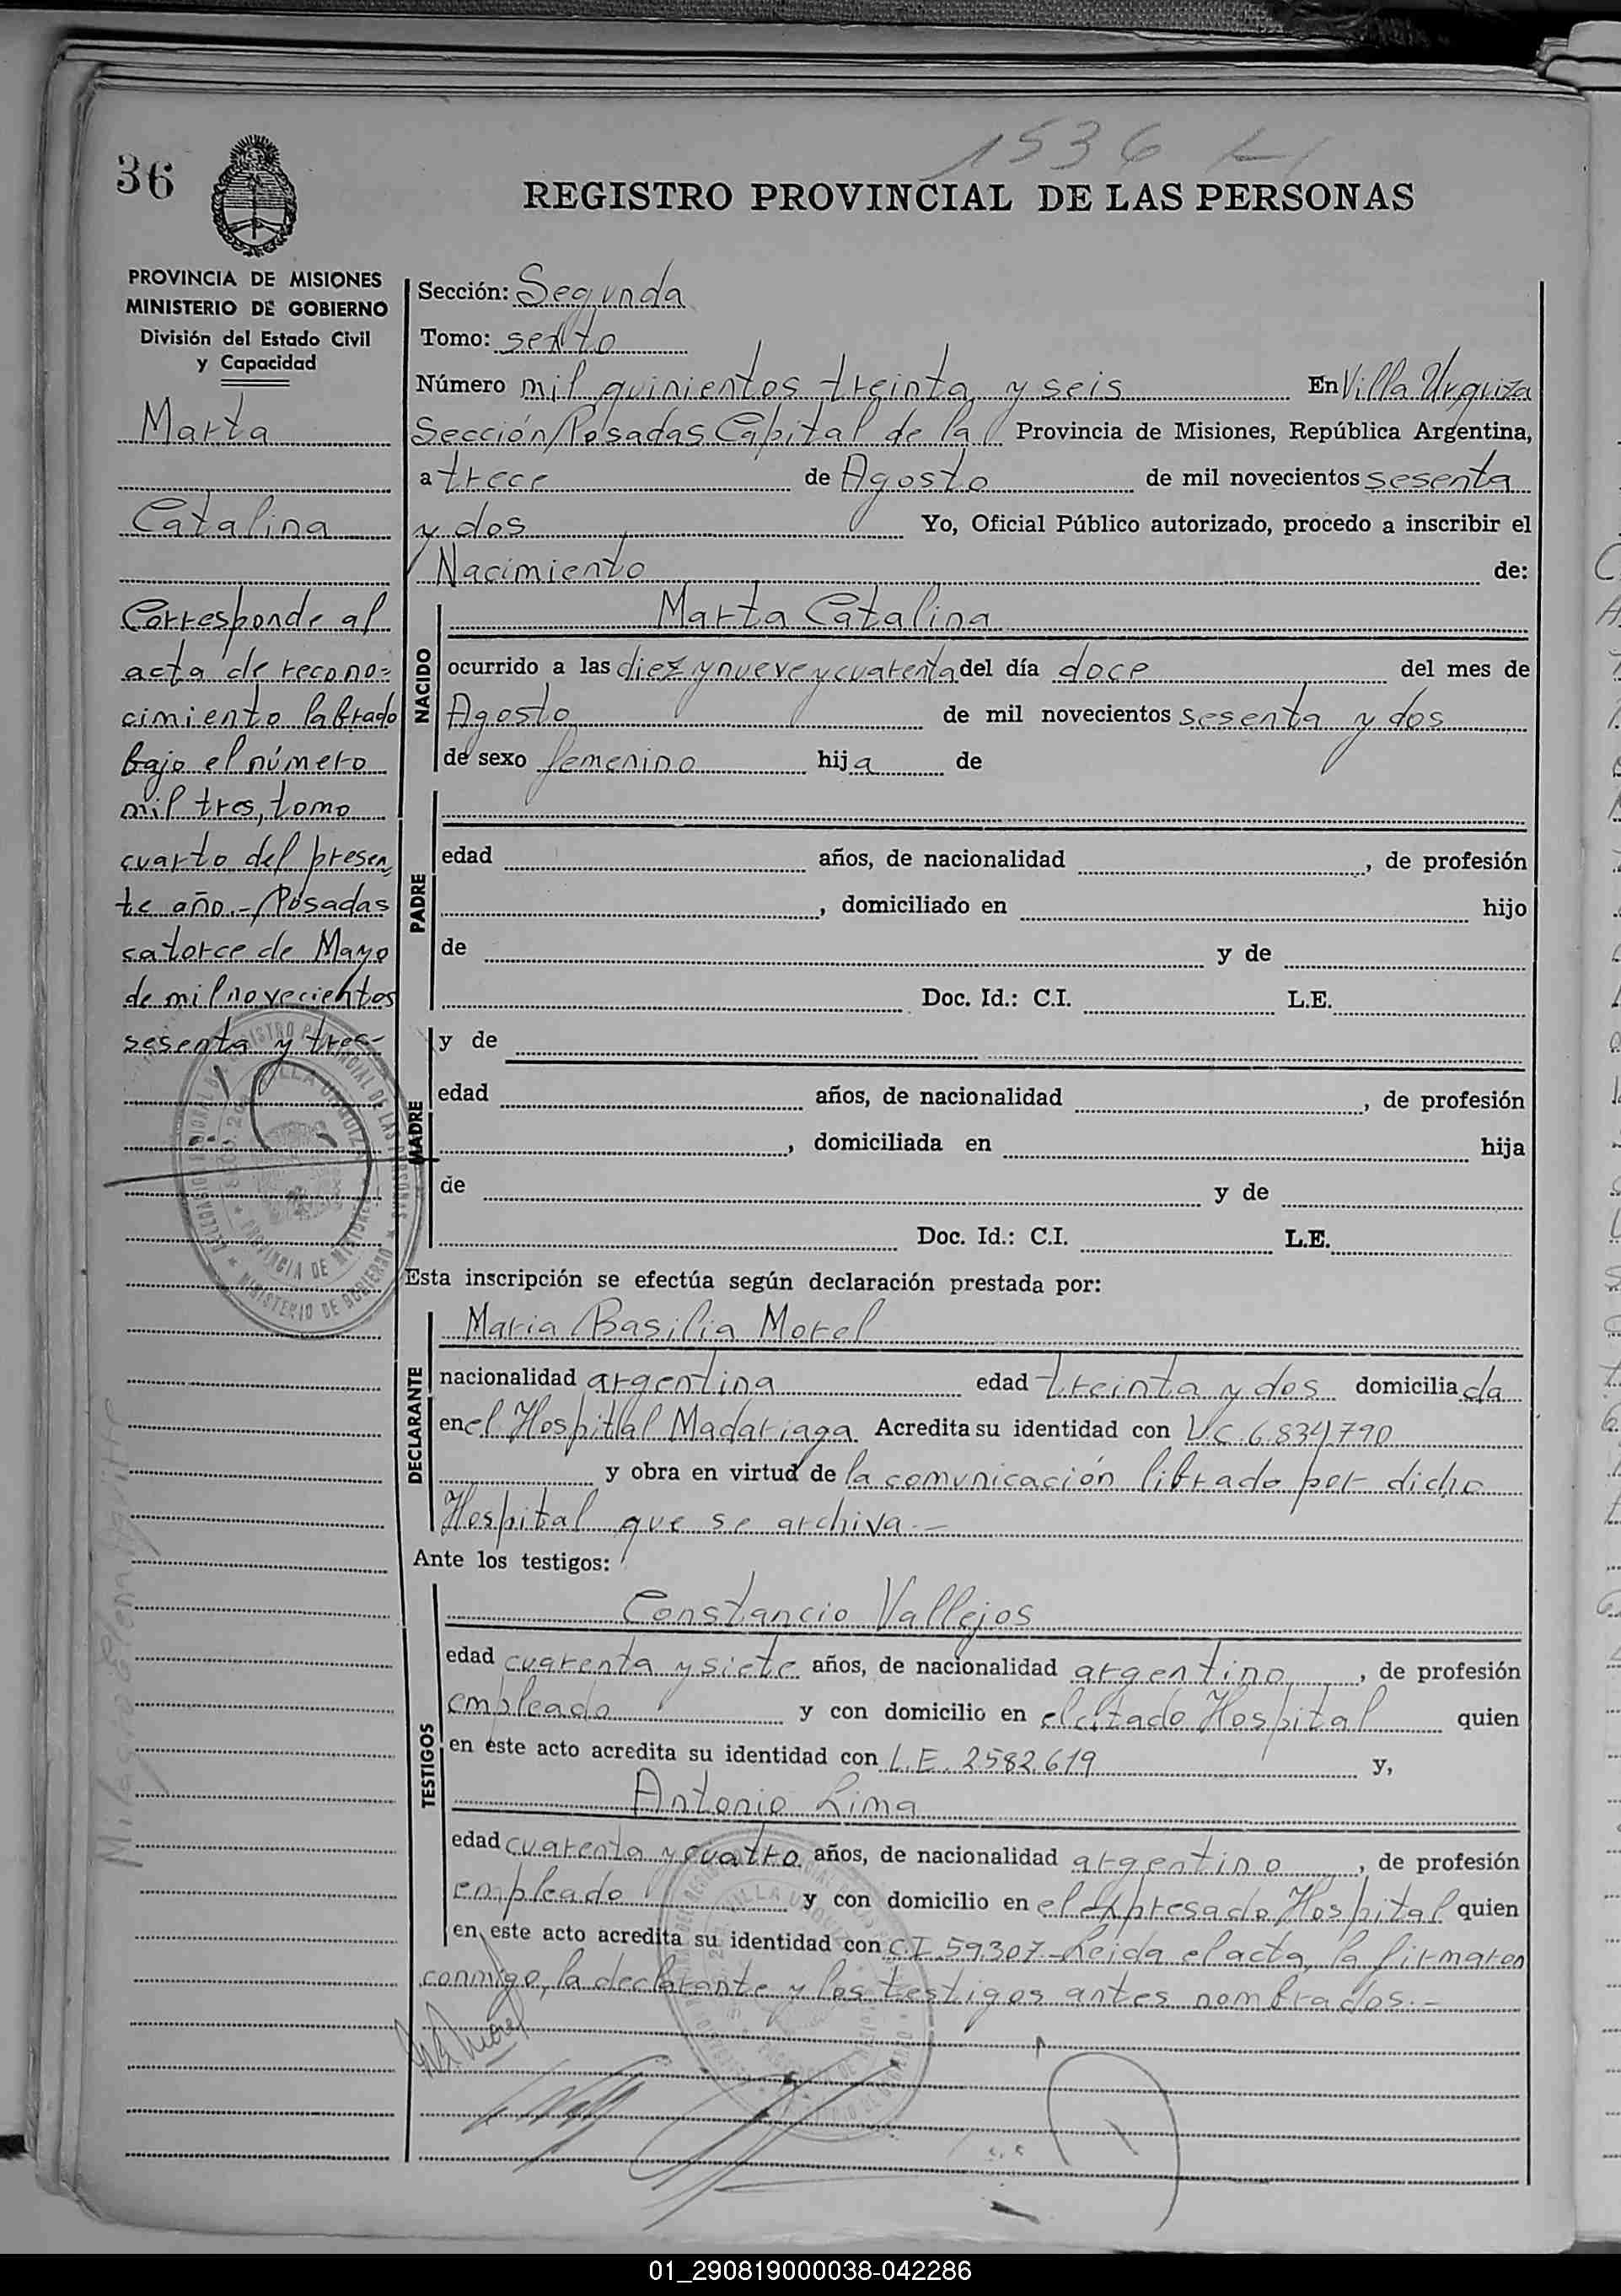 1536
36
REGISTRO PROVINCIAL DE LAS PERSONAS
PROVINCIA DE MISIONES
MINISTERIO DE GOBIERNO
División del Estado Civil
y Capacidad
Marta
Catalina
Corresponde al
acta de recono=
cimiento labrado
bajo el número
mil tres, tomo
cuarto del presen,
te año.- Posadas
catorce de Mayo
de mil novecientos
sesenta y tres-
Sección: Segunda
Tomo: sexto
Número mil quinientos treinta y seis En Villa Urquiza
Sección Posadas Capital de la Provincia de Misiones, República Argentina,
a trece de Agosto de mil novecientos sesenta
y dos Yo, Oficial Público autorizado, procedo a inscribir el
Nacimiento de:
NACIDO
Marta Catalina
ocurrido a las diez y nueve y cuarenta del día doce del mes de
Agosto de mil novecientos sesenta y dos
de sexo femenino hija de
PADRE
edad años, de nacionalidad , de profesión
, domiciliado en hijo
de y de
Doc. Id.: C.I. L.E.
MADRE
y de
edad años, de nacionalidad , de profesión
, domiciliada en hija
de y de
Doc. Id.: C.I. L.E.
Esta inscripción se efectúa según declaración prestada por:
DECLARANTE
Maria Basilia Morel
nacionalidad argentina edad treinta y dos domiciliada
en el Hospitlal Madariaga Acredita su identidad con L.C. 6.834790
y obra en virtud de la comunicación librado por dicho
Hospital que se archiva.-
Ante los testigos:
TESTIGOS
Constancio Vallejos
edad cuarenta y siete años, de nacionalidad argentino, de profesión
empleado y con domicilio en el citado Hospital quien
en este acto acredita su identidad con L.E. 2582.619 y,
Antonio Lima
edad cuarenta y cuatro años, de nacionalidad argentino, de profesión
empleado y con domicilio en el expresado Hospital quien
en este acto acredita su identidad con C.I 59.307.- Leida el acta, la firmaron
conmigo, la declarante y los testigos antes nombrados.-
01_290819000038-042286